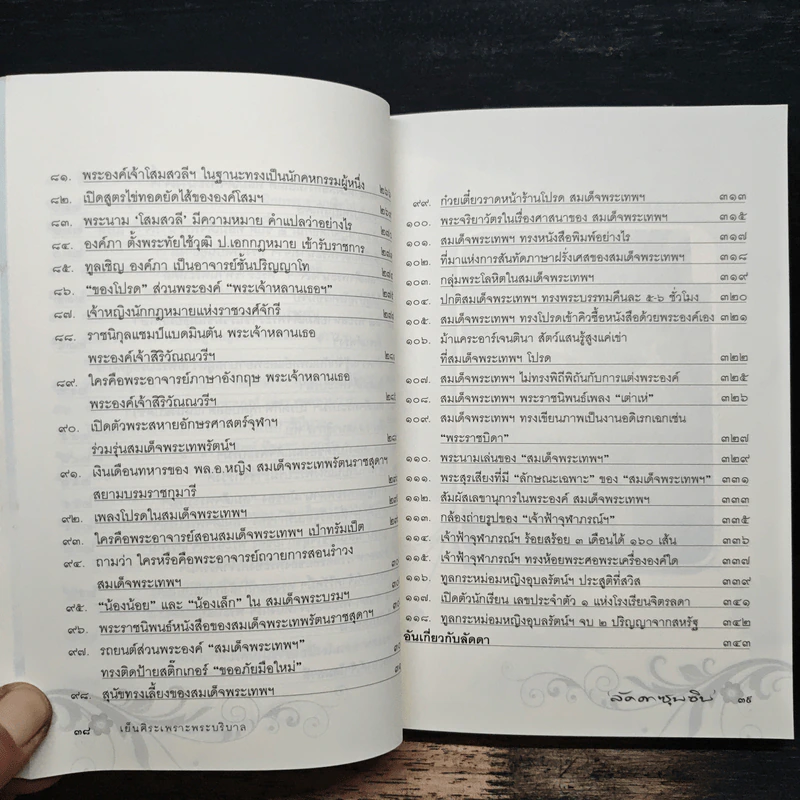 ๘๑. พระองค์เจ้าโสมสวลีฯ ในฐานะทรงเป็นนักคหกรรมผู้หนึ่ง
๘๒. เปิดสูตรไข่ทอดยัดไส้ขององค์โสมฯ
๘๓. พระนาม ‘โสมสวลี’ มีความหมาย คำแปลว่าอย่างไร
๘๔. องค์ภา ตั้งพระทัยใช้วุฒิ ป.เอกกฎหมาย เข้ารับราชการ
๘๕. ทูลเชิญ องค์ภา เป็นอาจารย์ชั้นปริญญาโท
๘๖. “ของโปรด” ส่วนพระองค์ “พระเจ้าหลานเธอฯ”
๘๗. เจ้าหญิงนักกฎหมายแห่งราชวงศ์จักรี
๘๘. ราชนิกุลแชมป์แบดมินตัน พระเจ้าหลานเธอ
พระองค์เจ้าสิริวัณณวรีฯ
๘๙. ใครคือพระอาจารย์ภาษาอังกฤษ พระเจ้าหลานเธอ
พระองค์เจ้าสิริวัณณวรีฯ
๙๐. เปิดตัวพระสหายอักษรศาสตร์จุฬาฯ
ร่วมรุ่นสมเด็จพระเทพรัตน์ฯ
๙๑. เงินเดือนทหารของ พล.อ.หญิง สมเด็จพระเทพรัตนราชสุดาฯ
สยามบรมราชกุมารี
๙๒. เพลงโปรดในสมเด็จพระเทพฯ
๙๓. ใครคือพระอาจารย์สอนสมเด็จพระเทพฯ เป่าทรัมเป็ต
๙๔. ถามว่า ใครหรือคือพระอาจารย์ถวายการสอนรำวง
สมเด็จพระเทพฯ
๙๕. “น้องน้อย” และ “น้องเล็ก” ใน สมเด็จพระบรมฯ
๙๖. พระราชนิพนธ์หนังสือของสมเด็จพระเทพรัตนราชสุดาฯ
๙๗. รถยนต์ส่วนพระองค์ “สมเด็จพระเทพฯ”
ทรงติดป้ายสติ๊กเกอร์ “ขออภัยมือใหม่”
๙๘. สุนัขทรงเลี้ยงของสมเด็จพระเทพฯ
๓๘ เย็นศิระเพราะพระบริบาล
๙๙. ก๋วยเตี๋ยวราดหน้าร้านโปรด สมเด็จพระเทพฯ ๓๑๓
๑๐๐. พระจริยาวัตรในเรื่องศาสนาของ สมเด็จพระเทพฯ ๓๑๕
๑๐๑. สมเด็จพระเทพฯ ทรงหนังสือพิมพ์อย่างไร ๓๑๗
๑๐๒. ที่มาแห่งการสันทัดภาษาฝรั่งเศสของสมเด็จพระเทพฯ ๓๑๘
๑๐๓. กลุ่มพระโลหิตในสมเด็จพระเทพฯ ๓๑๙
๑๐๔. ปกติสมเด็จพระเทพฯ ทรงพระบรรทมคืนละ ๕-๖ ชั่วโมง ๓๒๐
๑๐๕. สมเด็จพระเทพฯ ทรงโปรดเข้าคิวซื้อหนังสือด้วยพระองค์เอง ๓๒๑
๑๐๖. ม้าแคระอาร์เจนตินา สัตว์แสนรู้สูงแค่เข่า
ที่สมเด็จพระเทพฯ โปรด ๓๒๒
๑๐๗. สมเด็จพระเทพฯ ไม่ทรงพิถีพิถันกับการแต่งพระองค์ ๓๒๕
๑๐๘. สมเด็จพระเทพฯ พระราชนิพนธ์เพลง “เต่าเห่” ๓๒๖
๑๐๙. สมเด็จพระเทพฯ ทรงเขียนภาพเป็นงานอดิเรกเฉกเช่น
“พระราชบิดา” ๓๒๗
๑๑๐. พระนามเล่นของ “สมเด็จพระเทพฯ” ๓๒๙
๑๑๑. พระสุรเสียงที่มี “ลักษณะเฉพาะ” ของ “สมเด็จพระเทพฯ” ๓๓๑
๑๑๒. สัมผัสเลขานุการในพระองค์ สมเด็จพระเทพฯ ๓๓๓
๑๑๓. กล้องถ่ายรูปของ “เจ้าฟ้าจุฬาภรณ์ฯ” ๓๓๕
๑๑๔. เจ้าฟ้าจุฬาภรณ์ฯ ร้อยสร้อย ๓ เดือนได้ ๑๖๐ เส้น ๓๓๖
๑๑๕. เจ้าฟ้าจุฬาภรณ์ฯ ทรงห้อยพระศอพระเครื่ององค์ใด ๓๓๗
๑๑๖. ทูลกระหม่อมหญิงอุบลรัตน์ฯ ประสูติที่สวิส ๓๓๙
๑๑๗. เปิดตัวนักเรียน เลขประจำตัว ๑ แห่งโรงเรียนจิตรลดา ๓๔๑
๑๑๘. ทูลกระหม่อมหญิงอุบลรัตน์ฯ จบ ๒ ปริญญาจากสหรัฐ ๓๔๒
อันเกี่ยวกับลัดดา ๓๔๓
ลัดดาซุบซิบ ๓๙